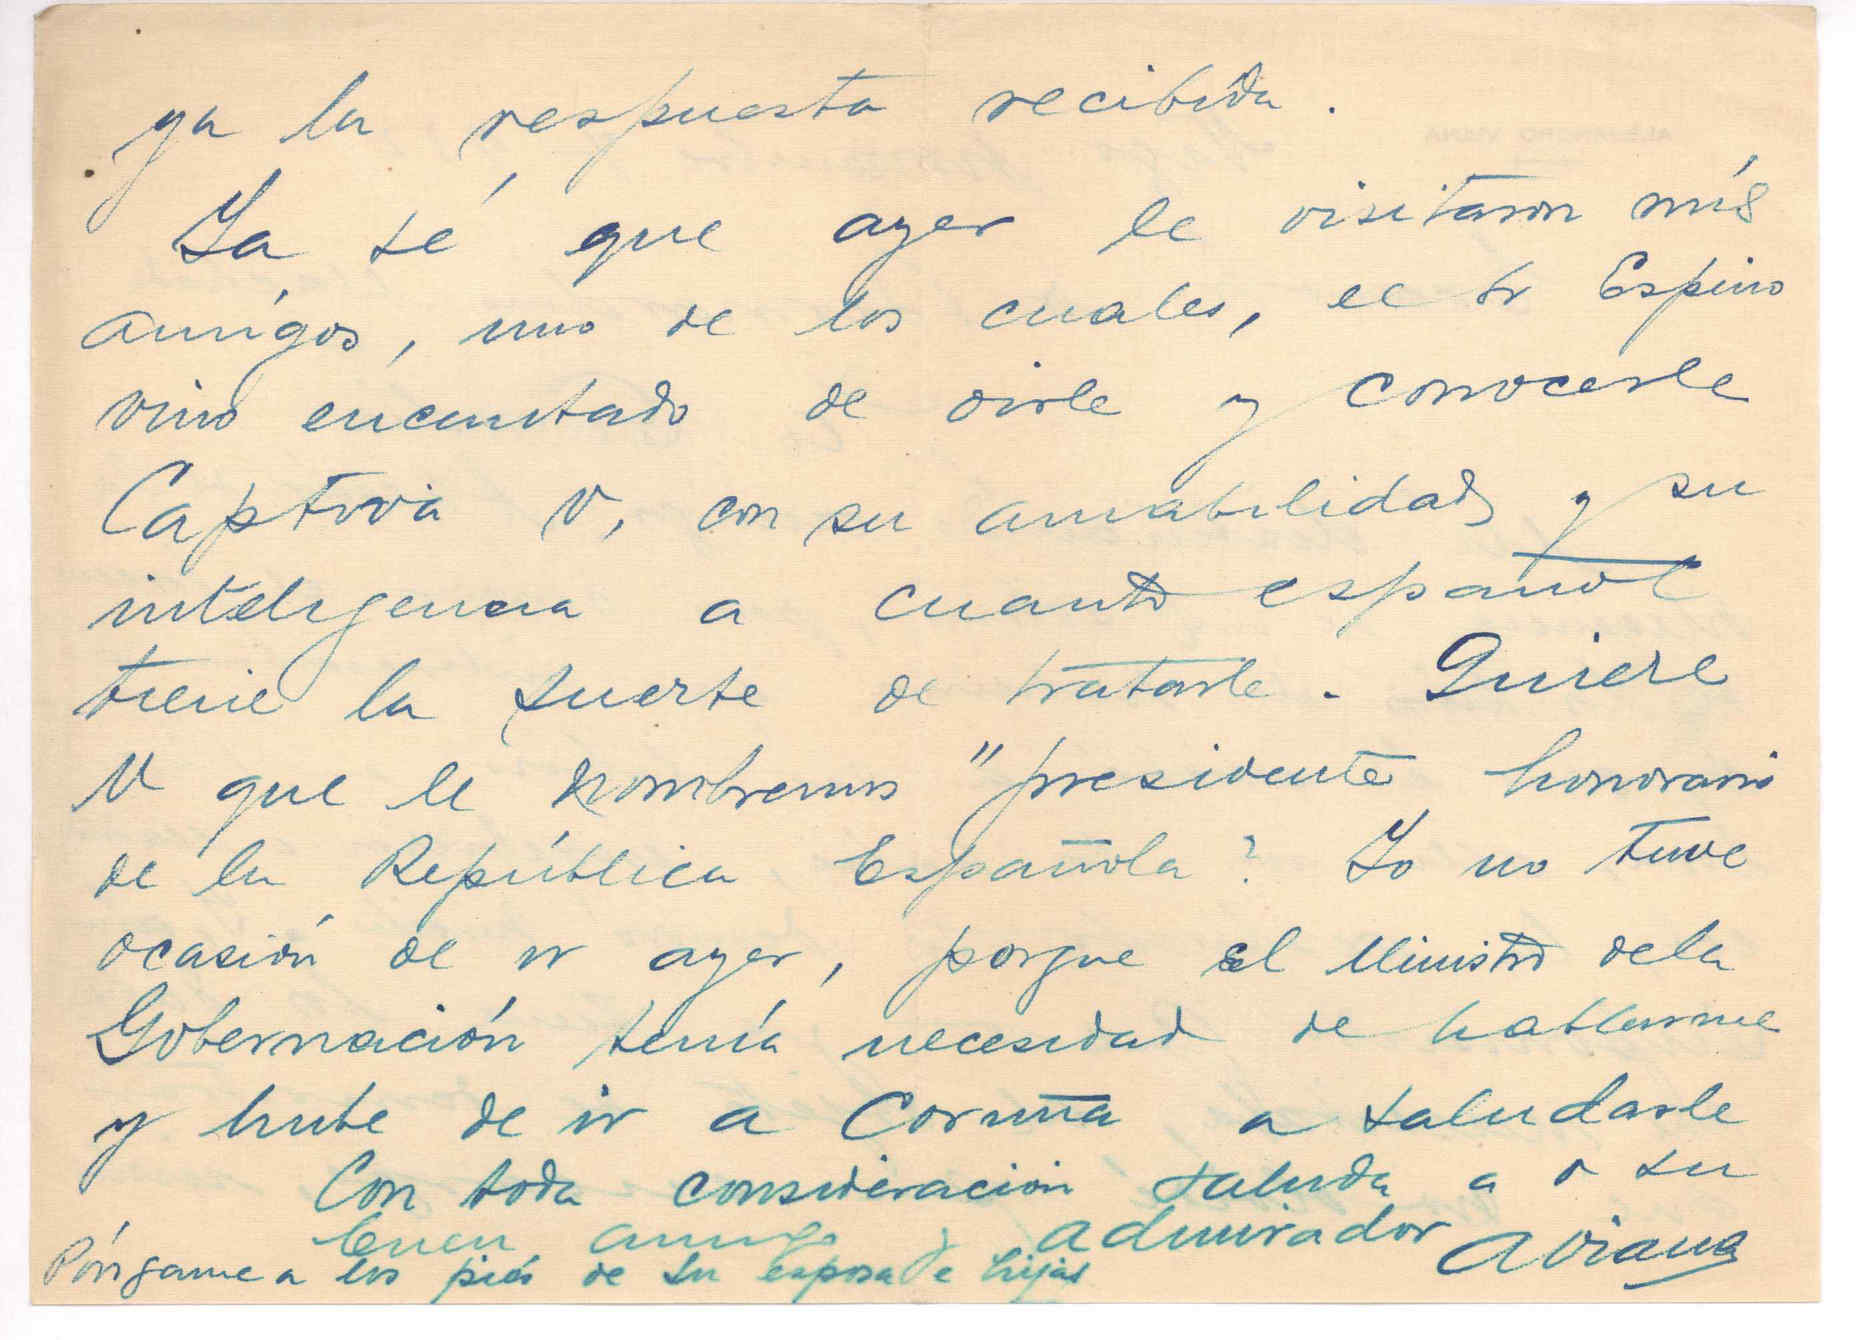 ya la respuesta recibida.
Ya sé que ayer le visitaron mis
amigos, uno de los cuales, el Sr Espino
vino encantado de oirle y conocerle
Captiva V. con su amabilidad y su
inteligencia a cuanto español
tiene la suerte de tratarle. Quiere
V que le nombremos "presidente honorario
de la República Española? Yo no tuve
ocasión de ir ayer, porque el Ministro de la
Gobernación tenía necesidad de hablarme
y hube de ir a Coruña a saludarle
Con toda consideración saluda a V su
buen amigo y admirador AViana
Póngame a los piés de su esposa e hijas
ALEJANDRO VIANA